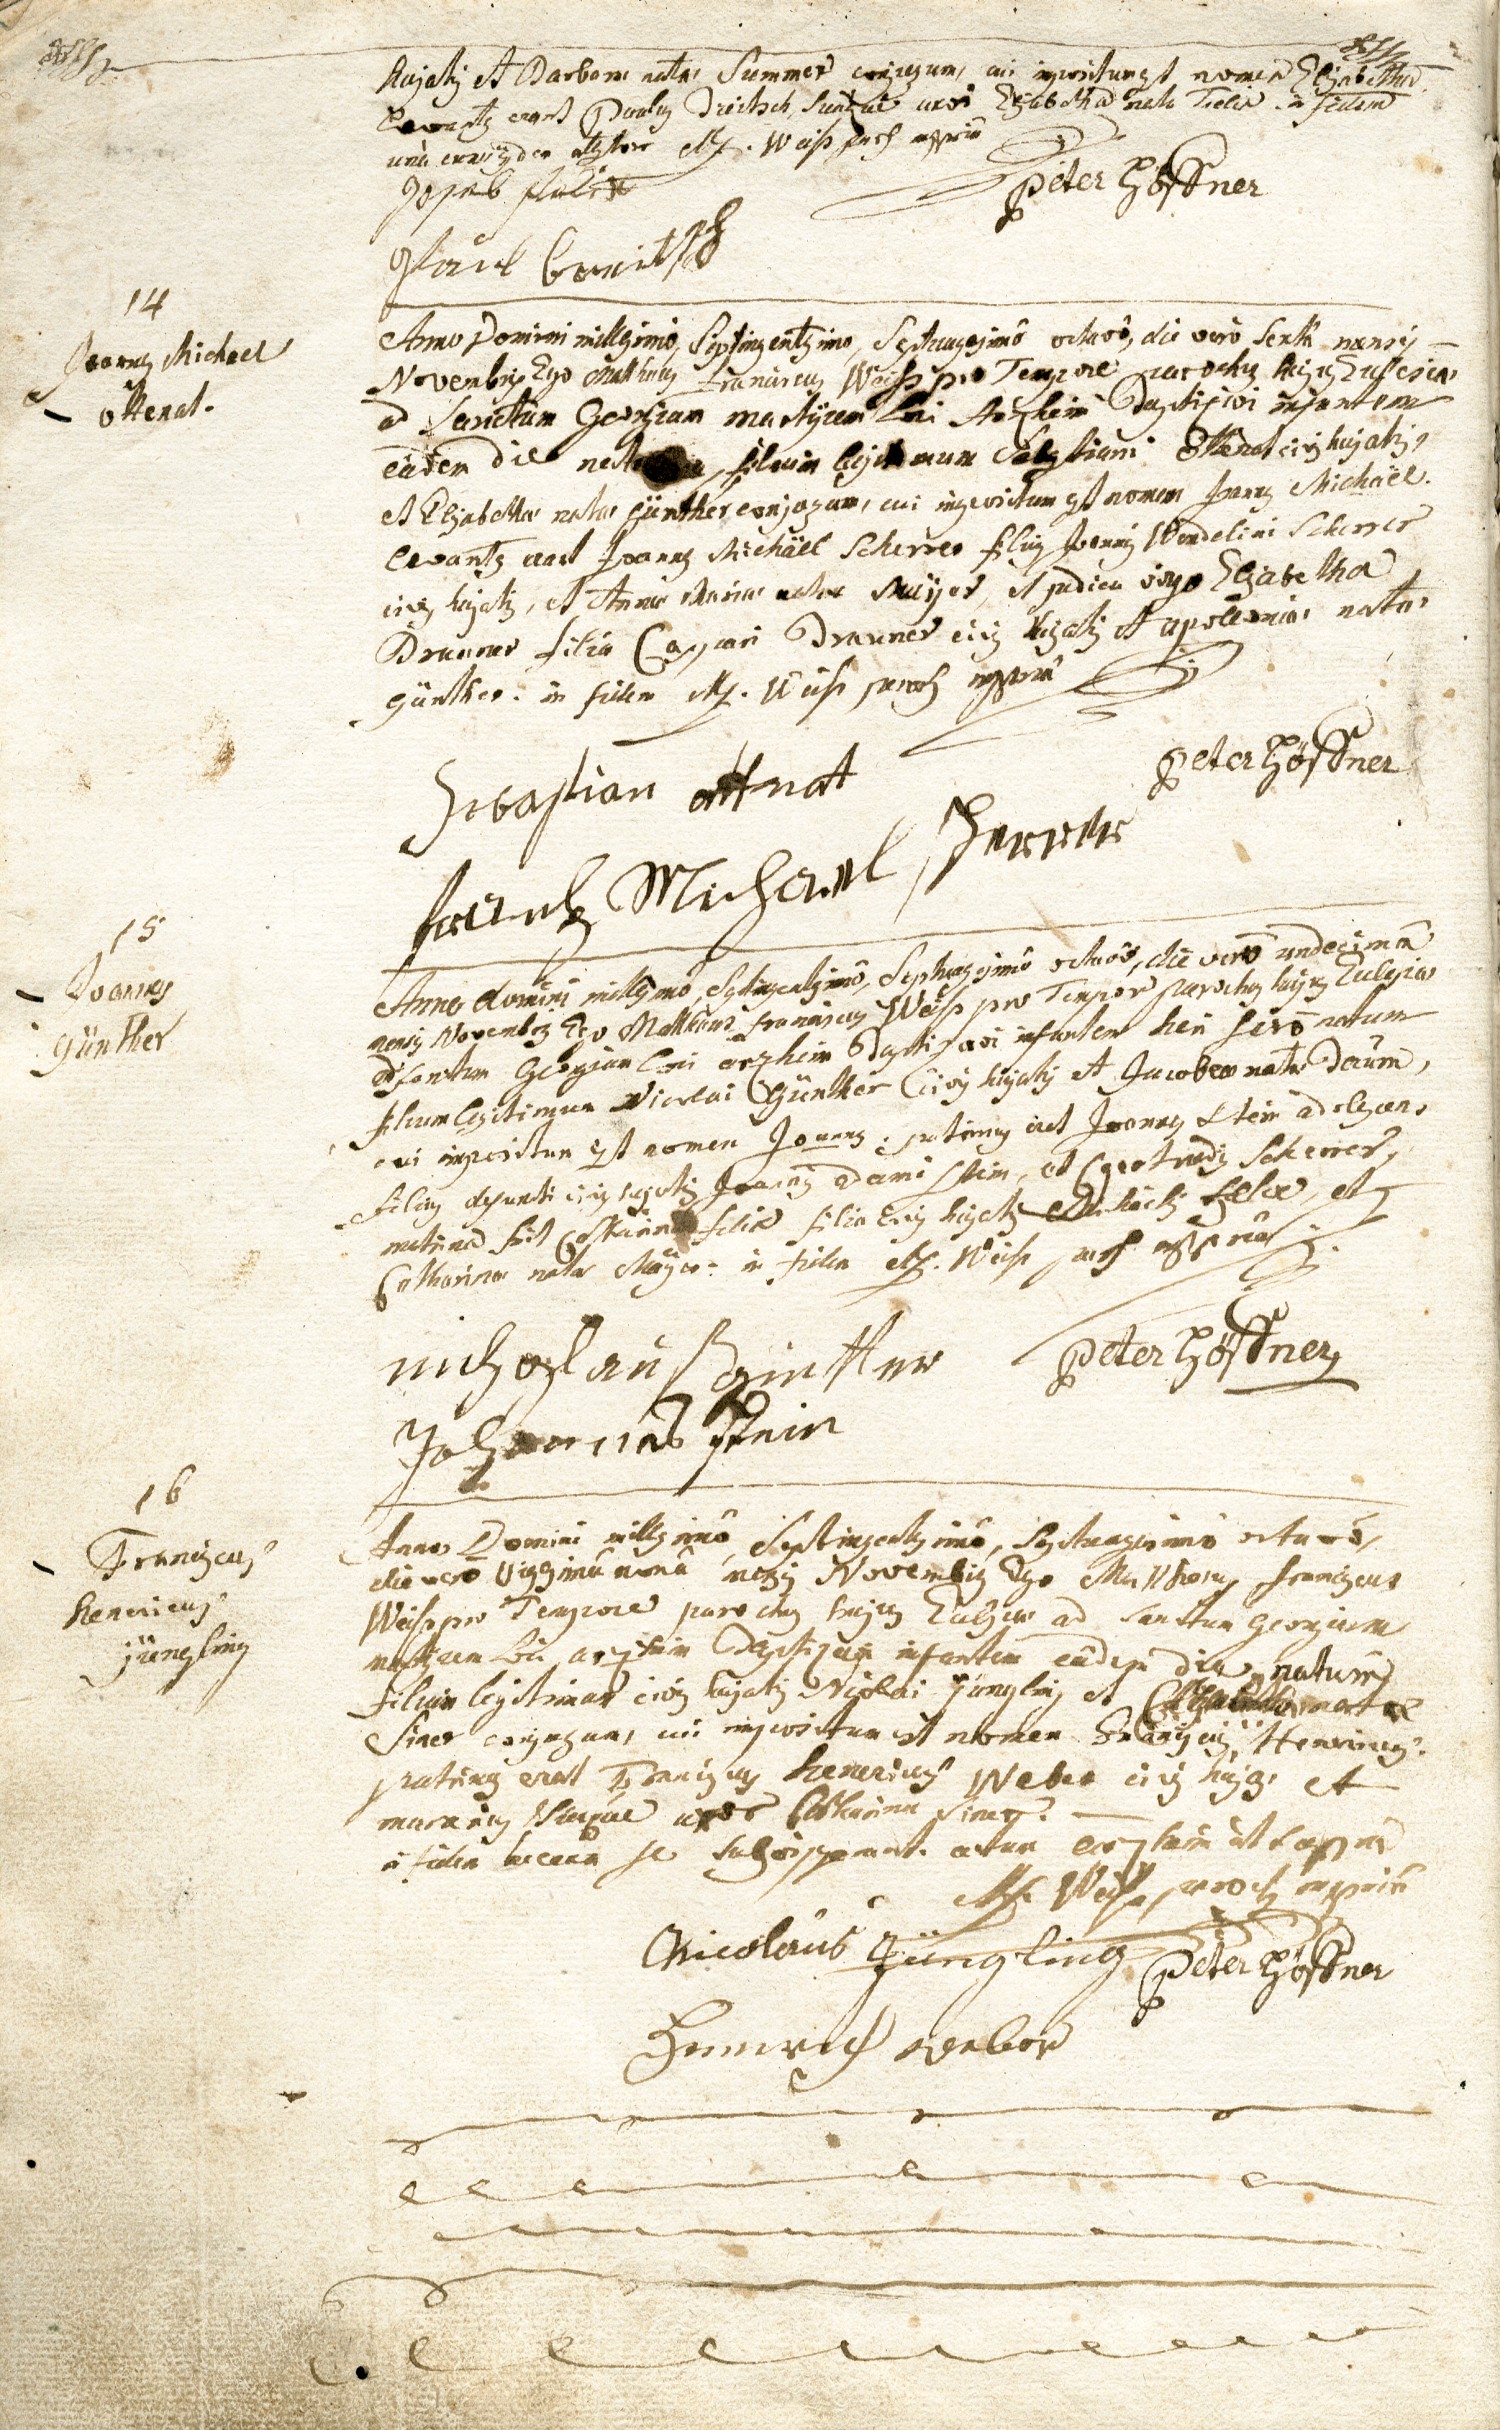 hujatis et Barbarae natae Summer conjugum, cui impositum est nomen Elisabetha.
Levantes erant Paulus uxor Elisabetha nata Felix in fidem
una cum Mf. Weiß paroch mppriâ
Peter Höffner
Paul
14
Joannes Michael
ottenat.
Anno Domini millesimo, Septingentesimo, Septuagesimô octavô, die verò Sextâ mensis
Novembris Ego Matthaeus Franciscus Weiß pro Tempore parochus hujus Ecclesiae
ad Sanctum Georgium martyrem Loci Arzheim Baptizavi infantem
eâdem die filium legitimum Sebastiani Ottenat civis hujatis,
et Elisabethae natae Günther conjugum, cui impositum est nomen Joannes Michaël.
Levantes erant Joannes Michäel Scherrer filius Joannis Wendelini Scherrer
civis hujatis, et Annae Mariae natae Maÿer, et pudica virgo Elisabetha
Brauner filia Caspari Brauner civis hujatis et apoloniae natae
günther. in fidem Mf. Weiß paroch mppriâ
Sebastian ottnat
Peter Höffner
Michael Scherrer
15
Joannes
günther
Anno domini millesimô, Septingentesimô, Septuagesimô octavô, die verò undecimâ
mensis Novembris Ego Matthaeus franciscus Weiß pro Tempore parochus hujus Ecclesiae
ad sanctum Georgium Loci arzheim Baptizavi infantem heri serò natum
filium legitimum Nicolai Günther Civis hujatis et Jacobeae natae Daum,
cui impositum est nomen Joannes; patrinus erat Joannes Stein adolescens
filius defuncti civis hujatis Joannis adami Stein, et Gertrudis Scherrer,
matrina fuit Catharina felix filia civis hujatis felix, et
Catharinae natae Maÿer. in fidem Mf. Weiß paroch mppriâ
nichoslauß gintter
Peter Höffner
Johannes Stein
16
Franciscus
henericus
jüngling
Anno Domini millesimô, Septingentesimô, Septuagesimô octavô,
die verò vigesimâ nonâ mensis Novembris Ego Matthaeus franciscus
Weiß pro Tempore parochus hujus Ecclesiae ad Sanctum Georgium
martyrem Loci arzheim Baptizavi infantem eâdem die natum
filium legitimum civis hujatis Nicolai Jüngling et natae
Siner conjugum, cui impositum est nomen Franciscus Henricus.
patrinus erat Franciscus henericus Weber civis hujas et
uxor Catharina Siner.
in fidem se subscripserunt. actum arzheim ut Supra
Mf. Weiß paroch mppriâ
Nicolaus Jüngling
Peter Höffner
Heinrich weber